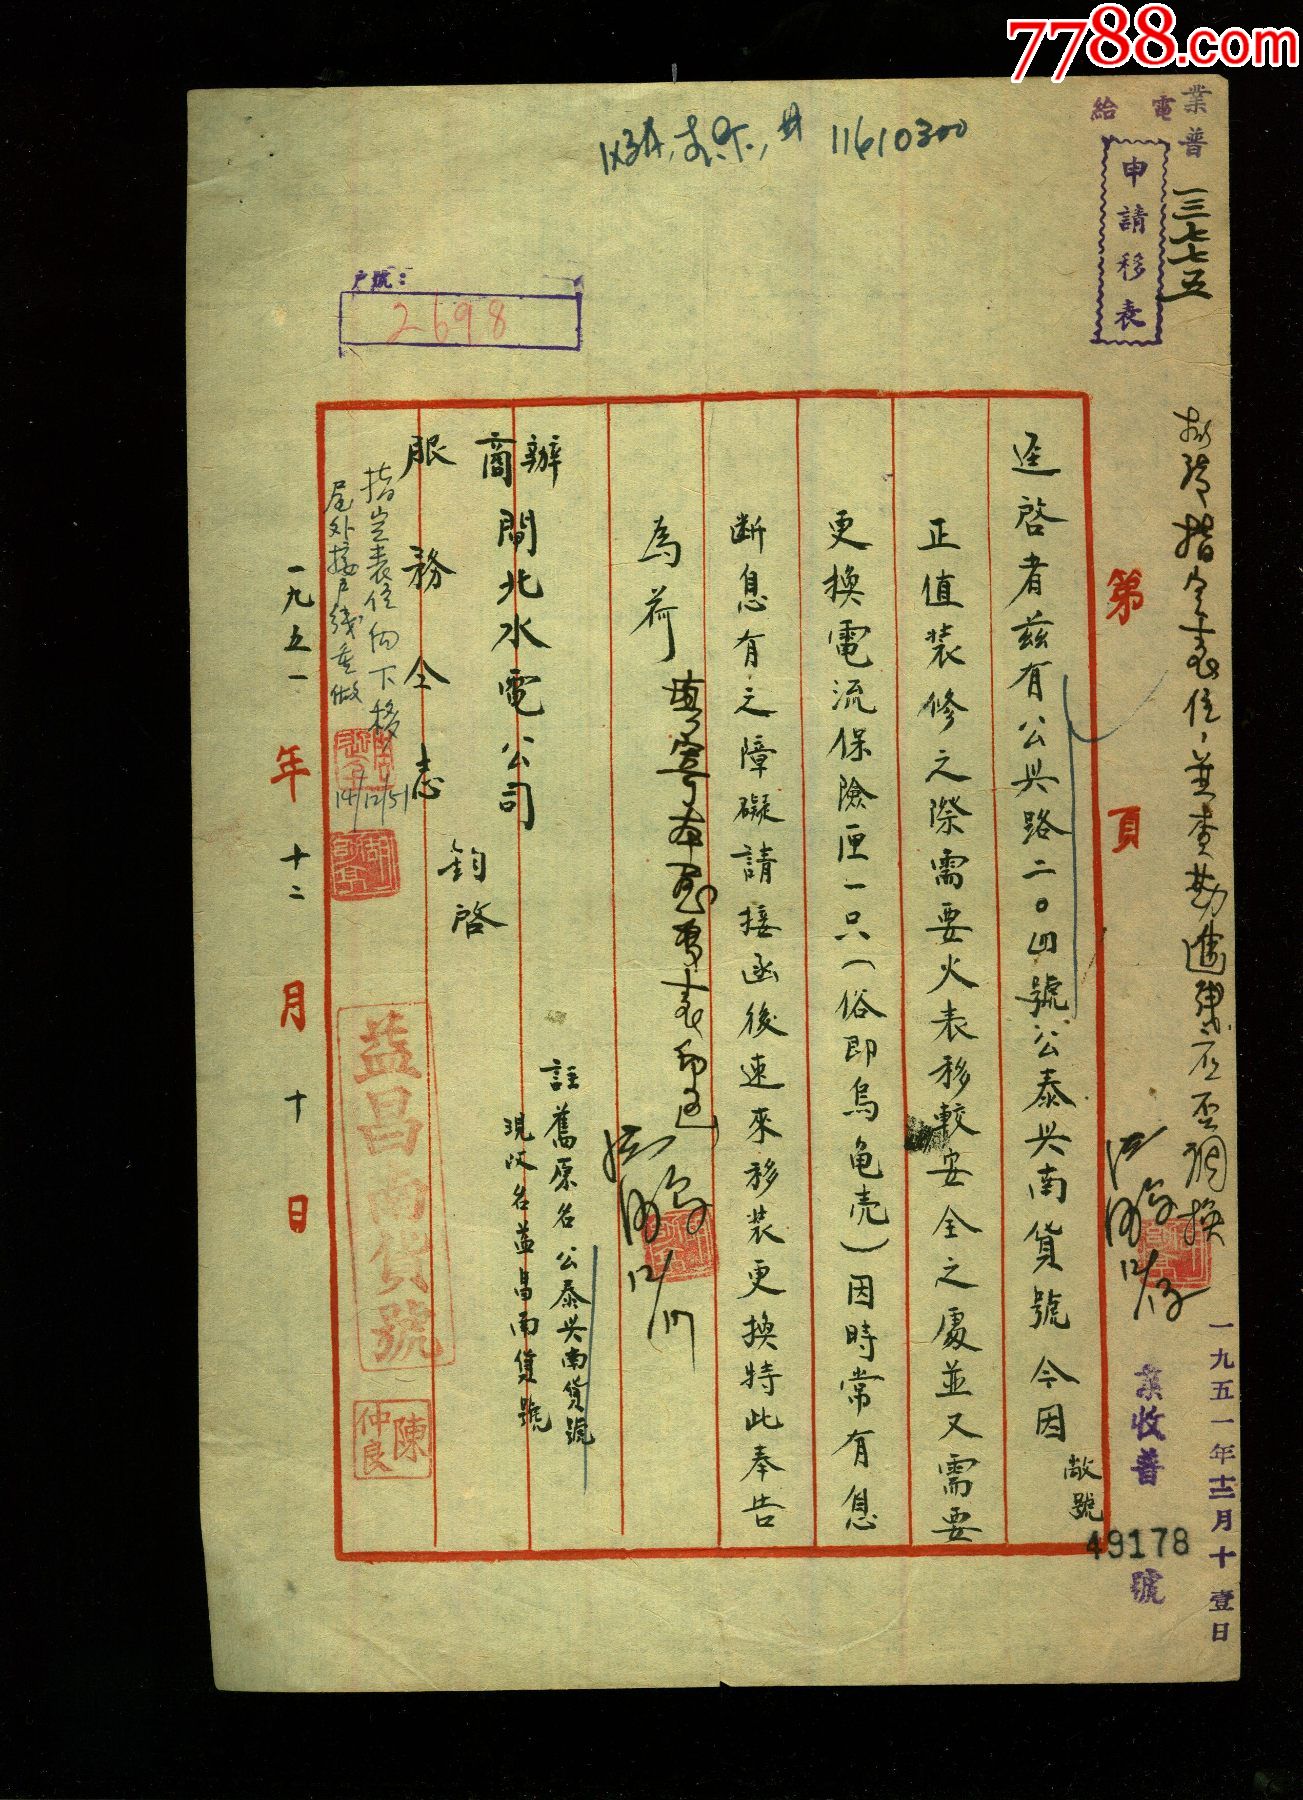 7788.com
業普
一三七七五
給電
申請移表
1161030
戶號：
2698
第 頁
逕啓者茲有公興路二〇四號公泰興南貨號今因
敝號
正值裝修之際需要火表移較安全之處並又需要
更換電流保險匣一只（俗即烏龜壳）因時常有息
断息有之障礙請接函後速來移裝更換特此奉告
為荷
註舊原名公泰興南貨號
現改名益昌南貨號
辦
商閘北水電公司
鈞啓
服務仝志
指定表位向下移
屋外接戶綫重做
14/12/51
一九五一年十二月十日
益昌南貨號
陳仲良
一九五一年十二月十壹日
業收普
49178
號